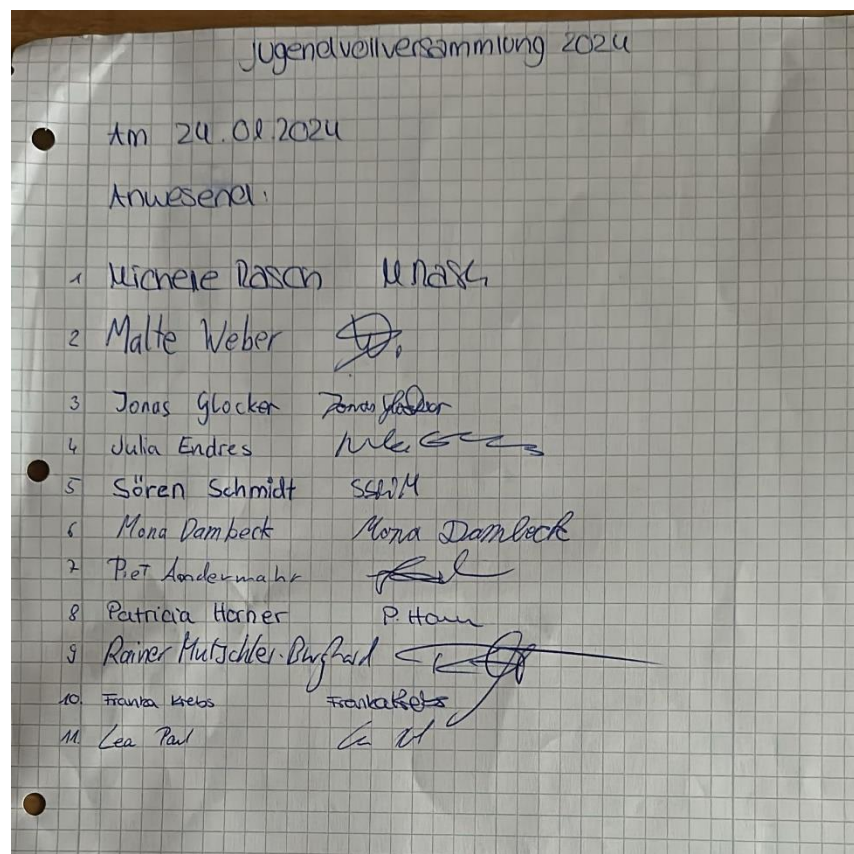 Jugendvollversammlung 2024
Am 24.02.2024
Anwesend:
1 Michele Rasch M Rasch
2 Malte Weber
3 Jonas Glocker Jonas Glocker
4 Julia Endres
5 Sören Schmidt
6 Mona Dambeck Mona Dambeck
7 Piet Andermahr
8 Patricia Horner P. Horn
9 Rainer Mutschler-Burghard
10. Franka Krebs Franka Krebs
11. Lea Paul